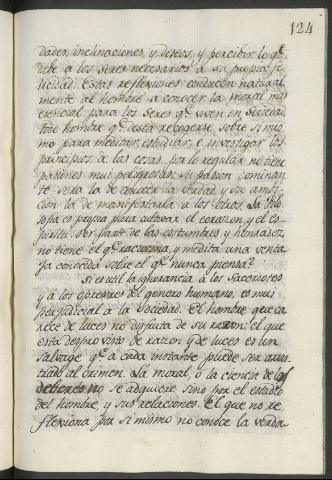 124
dades, inclinaciones, y deseos, y percibir lo q.e
debe à los seres necesarios à su propia fe-
licidad. Estas reflexiones conducen natural-
mente al hombre à conocer la moral mas
esencial para los seres q.e viven en sociedad.
todo hombre q.e desea recogerse sobre si mis-
mo para meditar, estudiar, è investigar los
principios de las cosas por lo regular no tiene
pasiones mui peligrosas: su pasion dominan-
te sera la de conocer la verdad, y su ambi-
cion la de manifestarla à los otros. La Filo-
sofia es propia para cultivar el corazon, y el es-
piritu. Por parte de las costumbres y honradez,
no tiene el q.e raciocina, y medita una venta-
ja conocida sobre el q.e nunca piensa?
Si es util la ignorancia à los Sacerdotes
y à los opresores del genero humano, es mui
perjudicial à la Sociedad. El hombre que ca-
rece de luces no disfruta de su razon: el que
esta desprovisto de razon y de luces es un
salvage q.e à cada instante puede ser arras-
trado al crimen. La moral, ò la ciencia de los
deberes no se adquiere sino por el estudio
del hombre, y sus relaciones. El que no re-
flexiona por si mismo no conoce la verda-